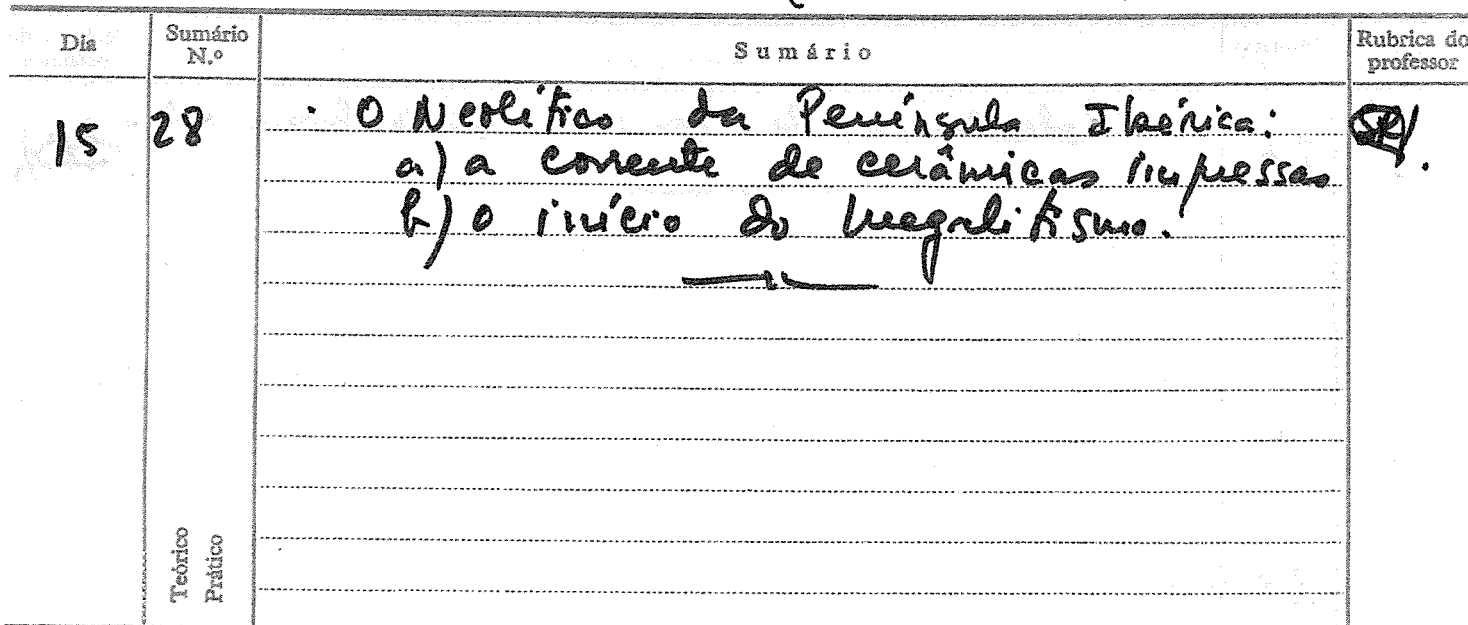 Dia Sumário N.º Sumário Rubrica do professor
15 28 · O Neolítico da Península Ibérica:
a) a corrente de cerâmicas impressas
b) o início do megalitismo.
Teórico
Prático